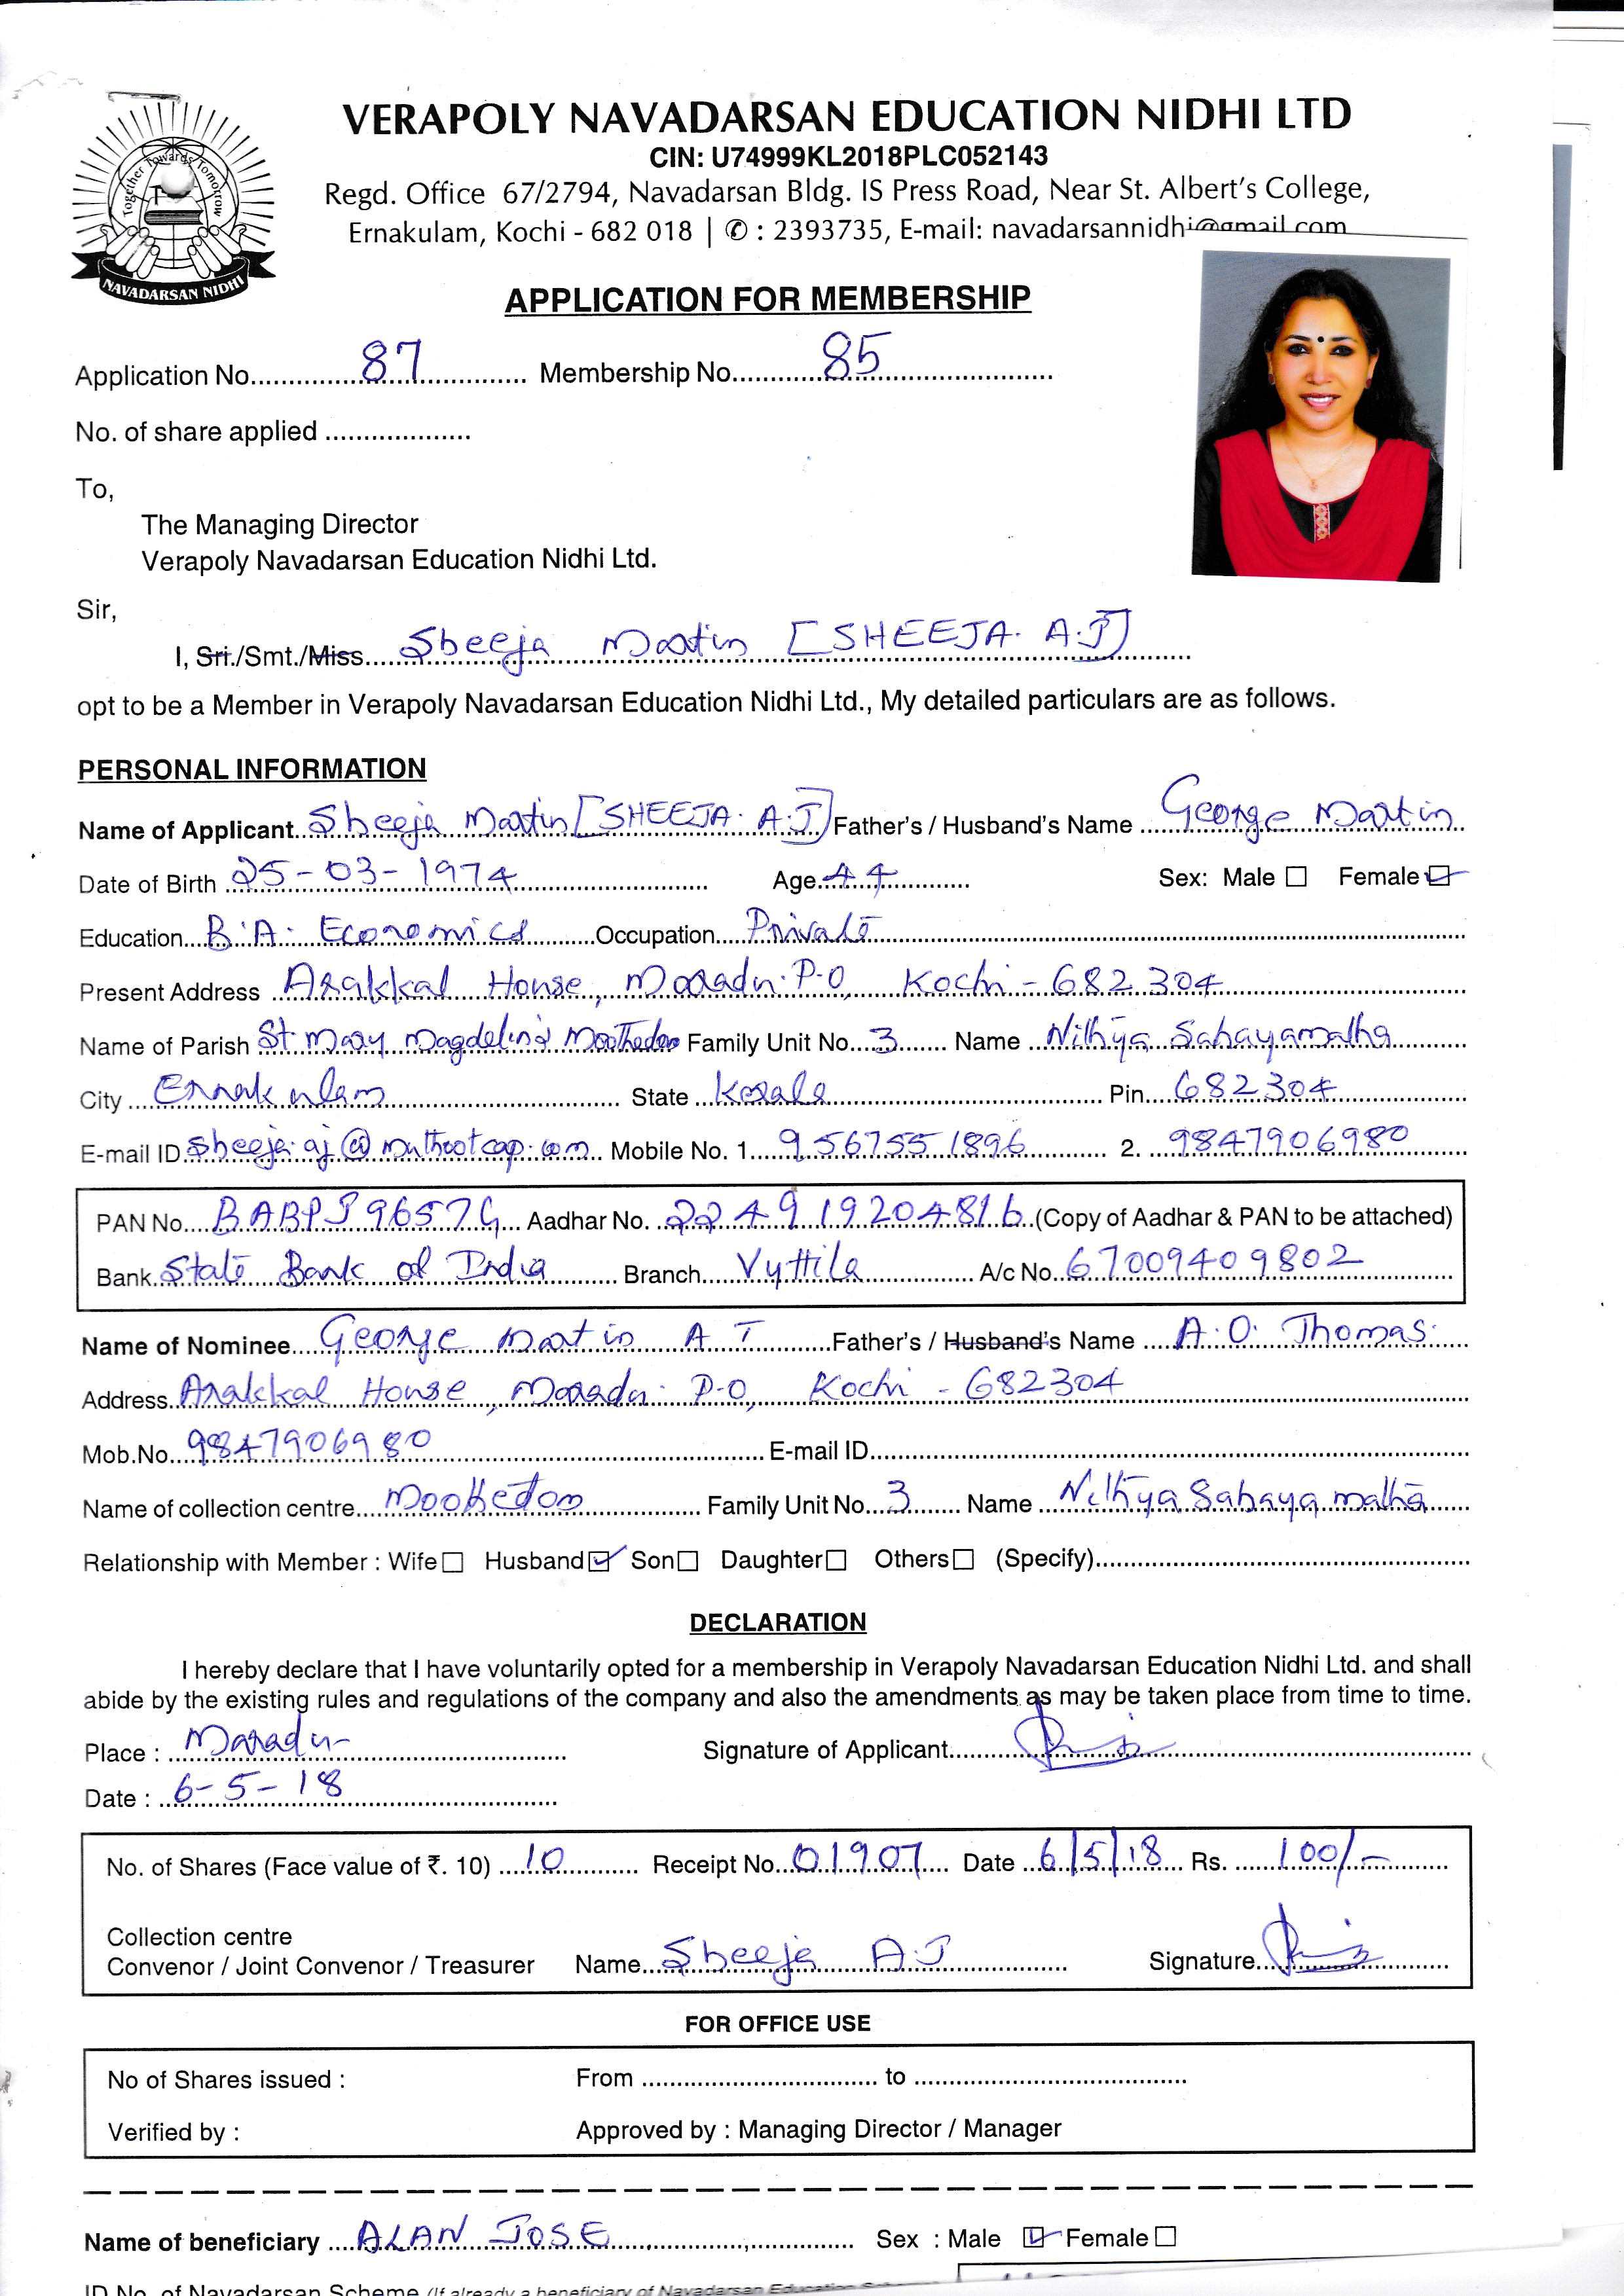 Together Towards Tomorrow
NAVADARSAN NIDHI
VERAPOLY NAVADARSAN EDUCATION NIDHI LTD
CIN: U74999KL2018PLC052143
Regd. Office 67/2794, Navadarsan Bldg. IS Press Road, Near St. Albert's College,
Ernakulam, Kochi - 682 018 | ✆ : 2393735, E-mail: navadarsannidhi@gmail.com
APPLICATION FOR MEMBERSHIP
Application No. 87 Membership No. 85
No. of share applied ....................
To,
The Managing Director
Verapoly Navadarsan Education Nidhi Ltd.
Sir,
I, Sri./Smt./Miss. Sheeja Martin [SHEEJA. A.J]
opt to be a Member in Verapoly Navadarsan Education Nidhi Ltd., My detailed particulars are as follows.
PERSONAL INFORMATION
Name of Applicant Sheeja Martin [SHEEJA. A.J] Father's / Husband's Name George Martin
Date of Birth 25-03-1974 Age 44 Sex: Male ☐ Female ☑
Education B.A. Economics Occupation Private
Present Address Arakkal House, Maradu. P.O, Kochi - 682 304
Name of Parish St Mary Magdeline's Family Unit No. 3 Name Nithya Sahayamatha
City Ernakulam State Kerala Pin 682304
E-mail ID sheeja.aj@muthootcap.com Mobile No. 1. 9567551896 2. 9847906980
PAN No. BABPJ9657G Aadhar No. 224919204816 (Copy of Aadhar & PAN to be attached)
Bank State Bank of India Branch Vyttila A/c No. 67009409802
Name of Nominee George Martin A T Father's / Husband's Name A.O. Thomas
Address Arakkal House, Maradu. P.O, Kochi - 682304
Mob.No. 9847906980 E-mail ID
Name of collection centre Family Unit No. 3 Name Nithya Sahaya matha
Relationship with Member : Wife ☐ Husband ☑ Son ☐ Daughter ☐ Others ☐ (Specify)
DECLARATION
I hereby declare that I have voluntarily opted for a membership in Verapoly Navadarsan Education Nidhi Ltd. and shall
abide by the existing rules and regulations of the company and also the amendments as may be taken place from time to time.
Place : Maradu Signature of Applicant
Date : 6-5-18
No. of Shares (Face value of ₹. 10) 10 Receipt No. 01907 Date 6/5/18 Rs. 100/-
Collection centre
Convenor / Joint Convenor / Treasurer Name Sheeja A.J Signature
FOR OFFICE USE
No of Shares issued : From ........ to ........
Verified by : Approved by : Managing Director / Manager
Name of beneficiary ALAN JOSE Sex : Male ☑ Female ☐
ID No. of Navadarsan Scheme (If already a beneficiary of Navadarsan Education